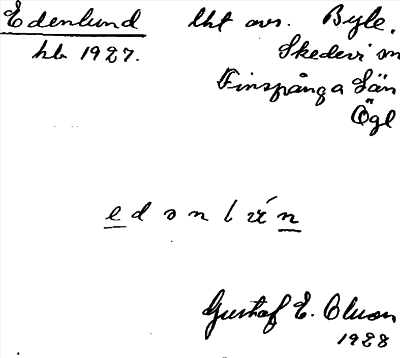 Edenlund lht avs. Byle,
hb 1927. Skedevi sn
Finspånga Län
Ögl
Gustaf E. Olson
1928